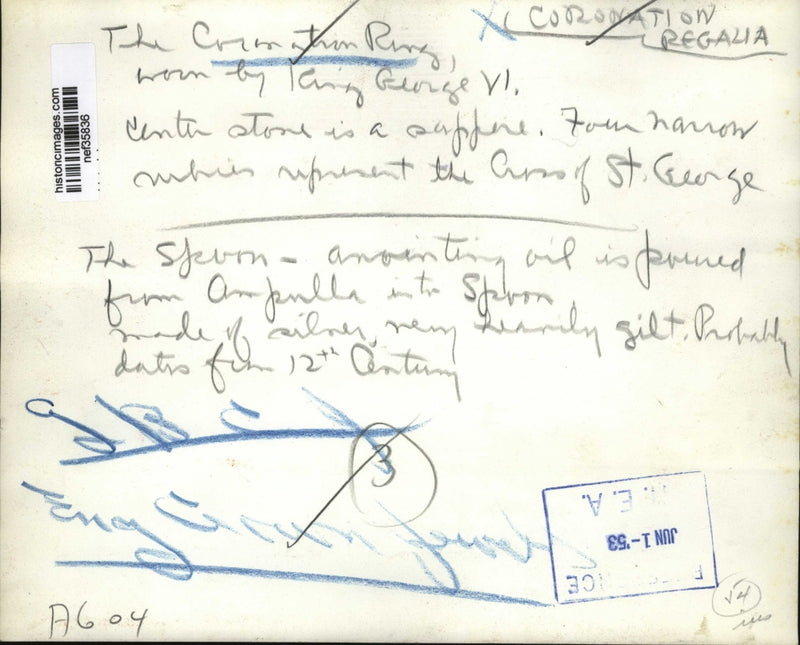 CORONATION
REGALIA
The Coronation Ring,
worn by King George VI.
Center stone is a sapphire. Four narrow
rubies represent the Cross of St. George
The Spoon - anointing oil is poured
from Ampulla into Spoon,
made of silver, very heavily gilt. Probably
dates from 12th Century
3
Eng Crown Jewels
REFERENCE
JUN 1 - '53
N.E.A.
A604
√4
historicimages.com
nef35836